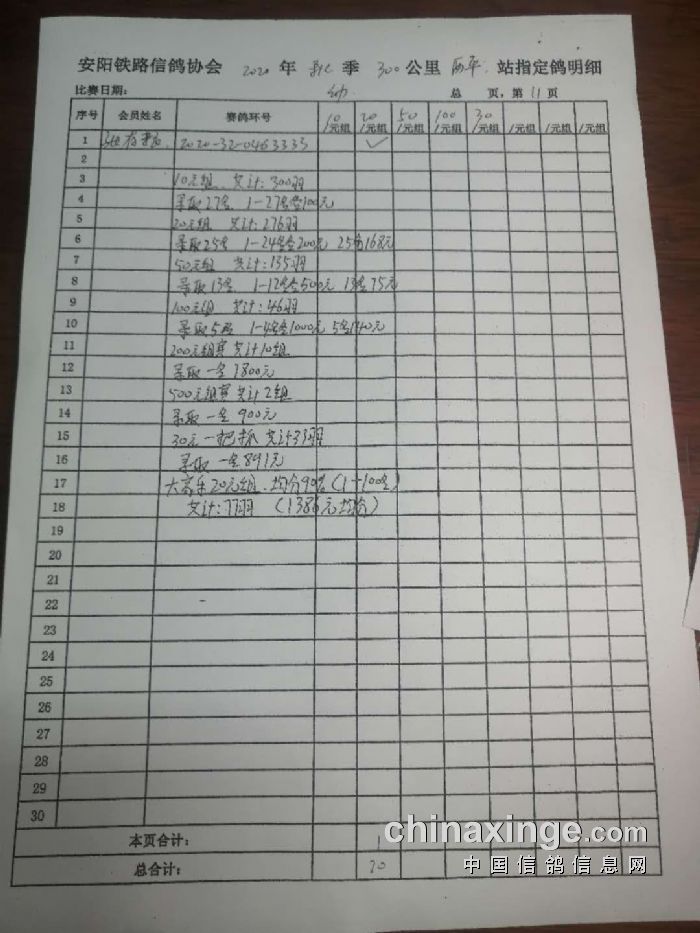 安阳铁路信鸽协会 2020 年 季 300 公里 站指定鸽明细
比赛日期: 幼 总 页,第 11 页
序号 会员姓名 赛鸽环号 10/元组 20/元组 50/元组 100/元组 30/元组 /元组 /元组 /元组
1 2020-32-0463333 ✓
2
3 10元组 共计:300羽
4 录取27名 1-27名各100元
5 20元组 共计:276羽
6 录取25名 1-24名各200元 25名168元
7 50元组 共计:135羽
8 录取13名 1-12名各500元 13名75元
9 100元组 共计:46羽
10 录取5名 1-4名各1000元 5名140元
11 200元组赛 共计10组
12 录取一名 1800元
13 500元组赛 共计2组
14 录取一名 900元
15 30元一把抓 共计33羽
16 录取一名891元
17 大高乐20元组 均分90% (1-100名)
18 共计:77羽 (1386元均分)
19
20
21
22
23
24
25
26
27
28
29
30
本页合计: 1
总合计: 20
chinaxinge.com
中国信鸽信息网